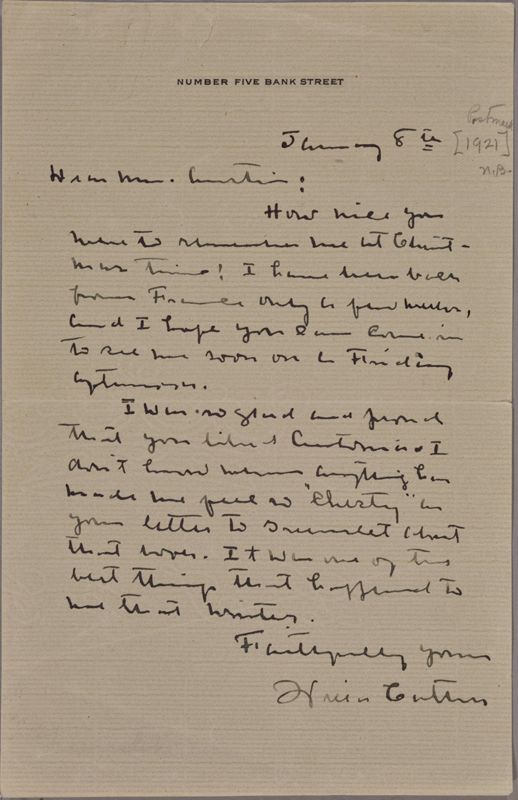 NUMBER FIVE BANK STREET
Postmark
January 8th [1921]
n.B.
Dear Mr. Austin:
How nice you
were to remember me at Christ-
mas time! I have been back
from France only a few weeks,
and I hope you can come in
to see me soon on a Friday
afternoon.
I was so glad and proud
that you liked Antonia. I
don't know when anything has
made me feel so "chesty" as
your letter to Scumlet about
that novel. It was one of the
best things that happened to
me that winter.
Faithfully yours
Willa Cather